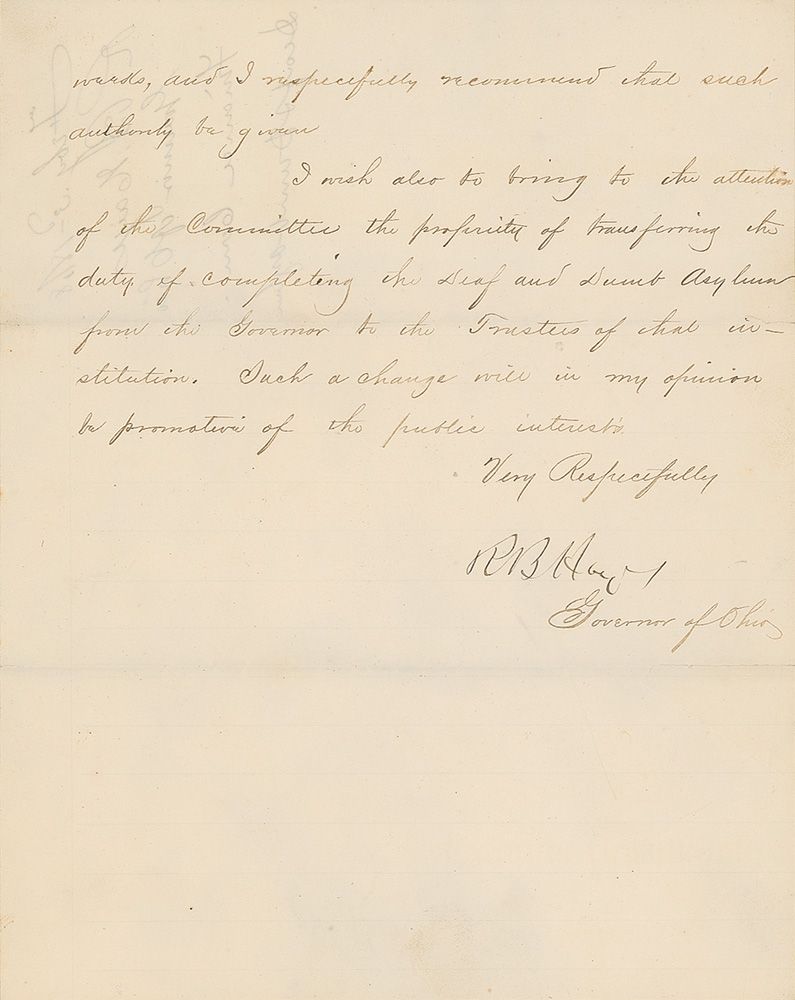 wards, and I respectfully recommend that such
authority be given
I wish also to bring to the attention
of the Committee the propriety of transferring the
duty of completing the Deaf and Dumb Asylum
from the Governor to the Trustees of that in-
stitution. Such a change will in my opinion
be promotive of the public interests.
Very Respectfully
R B Hayes
Governor of Ohio